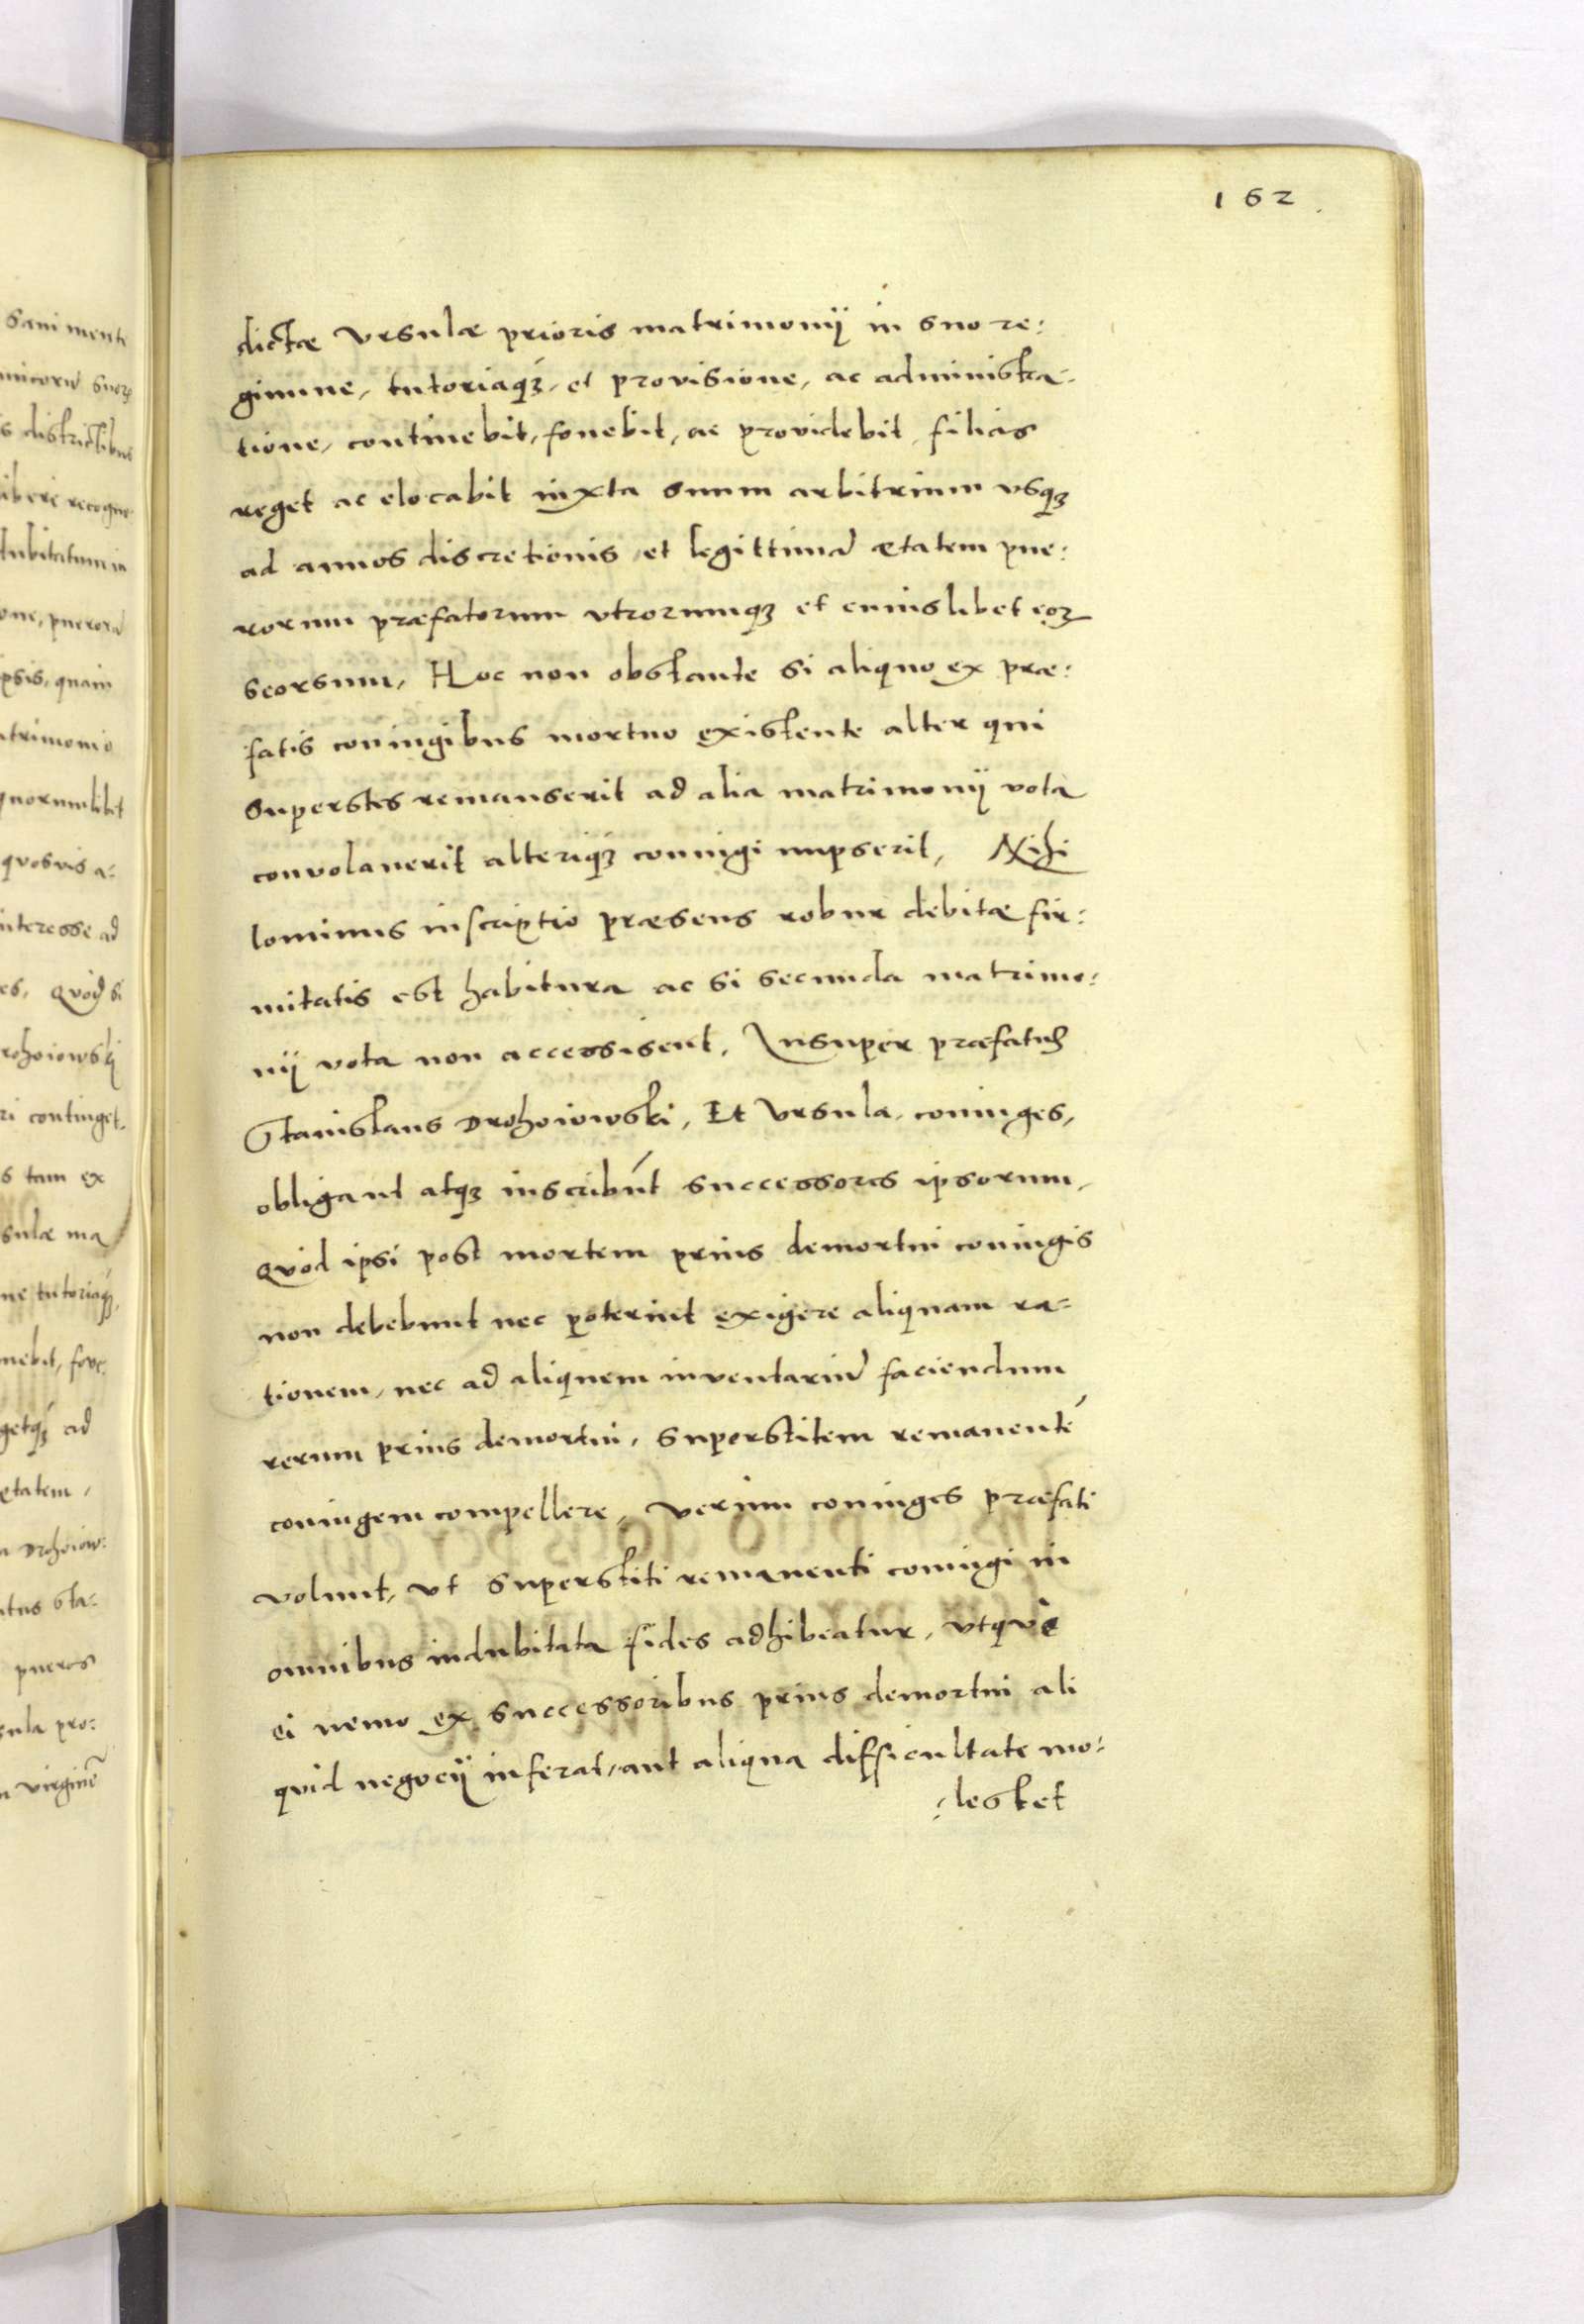 162.
dictæ Vrsulæ prioris matrimonij in suo re:
gimine, tutoriaq₃, et provisione, ac administra-
tione, continebit, fouebit, ac providebit, filias
reget ac elocabit iuxta suum arbitrium vsq₃
ad annos discretionis, et legittimā ætatem pue:
rorum præfatorum vtrorumq₃ et cuiuslibet eoꝝ
seorsum, Hoc non obstante si aliquo ex præ:
fatis coniugibus mortuo existente alter qui
superstes remanserit ad alia matrimonij vota
convolauerit alteriq₃ coniugi nupserit, Nihi
lominus inscriptio præsens robur debitæ fir:
mitatis est habitura ac si secunda matrimo:
nij vota non accessisent, Insuper præfatus
Stanislaus Drohoiowski, Et Vrsula, coniuges,
obligant atq₃ inscribūt successores ipsorum,
Quod ipsi post mortem prius demortui coniugis
non debebunt nec poterint exigere aliquam ra-
tionem, nec ad aliquem inventariū faciendum
rerum prius demortui, superstitem remanentē
coniugem compellere, verum coniuges præfati
volunt, vt superstiti remanenti coniugi in
omnibus indubitata fides adhibeatur, vtquè
ei nemo ex successoribus prius demortui ali
quid negocij inferat, aut aliqua difficultate mo:
:lestet
sani mente
districtibus
ipsis, quam
quosvis a:
interesse ad
es, Quod si
ri continget,
s tam ex
sulæ ma
nebit, fove:
ætatem,
a Drohoiow:
tus Sta:
pueros
sula pro:
virginē